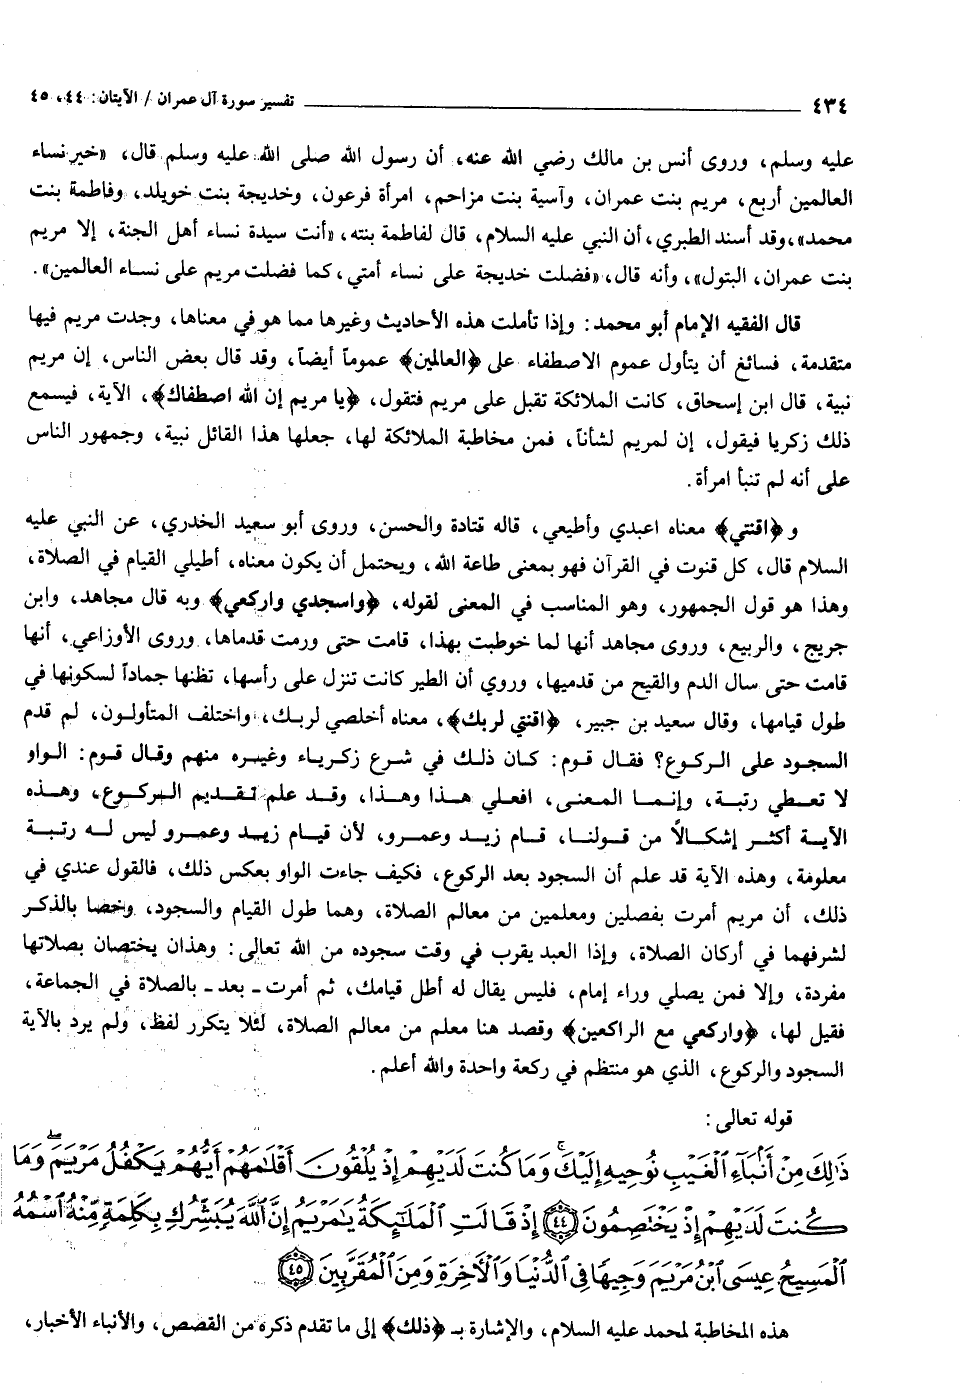 ٤٣٤ ــــــــــــــــــــ تفسير سورة آل عمران / الآيتان: ٤٤، ٤٥
عليه وسلم، وروى أنس بن مالك رضي الله عنه، أن رسول الله صلى الله عليه وسلم قال، «خير نساء
العالمين أربع، مريم بنت عمران، وآسية بنت مزاحم، امرأة فرعون، وخديجة بنت خويلد، وفاطمة بنت
محمد»،وقد أسند الطبري، أن النبي عليه السلام، قال لفاطمة بنته، «أنت سيدة نساء أهل الجنة، إلا مريم
بنت عمران، البتول»، وأنه قال، «فضلت خديجة على نساء أمتي، كما فضلت مريم على نساء العالمين».
قال الفقيه الإمام أبو محمد: وإذا تأملت هذه الأحاديث وغيرها مما هو في معناها، وجدت مريم فيها
متقدمة، فسائغ أن يتأول عموم الاصطفاء على ﴿العالمين﴾ عموماً أيضاً، وقد قال بعض الناس، إن مريم
نبية، قال ابن إسحاق، كانت الملائكة تقبل على مريم فتقول، ﴿يا مريم إن الله اصطفاك﴾، الآية، فيسمع
ذلك زكريا فيقول، إن لمريم لشأناً، فمن مخاطبة الملائكة لها، جعلها هذا القائل نبية، وجمهور الناس
على أنه لم تنبأ امرأة.
و ﴿اقنتي﴾ معناه اعبدي وأطيعي، قاله قتادة والحسن، وروى أبو سعيد الخدري، عن النبي عليه
السلام قال، كل قنوت في القرآن فهو بمعنى طاعة الله، ويحتمل أن يكون معناه، أطيلي القيام في الصلاة،
وهذا هو قول الجمهور، وهو المناسب في المعنى لقوله، ﴿واسجدي واركعي﴾ وبه قال مجاهد، وابن
جريج، والربيع، وروى مجاهد أنها لما خوطبت بهذا، قامت حتى ورمت قدماها، وروى الأوزاعي، أنها
قامت حتى سال الدم والقيح من قدميها، وروي أن الطير كانت تنزل على رأسها، تظنها جماداً لسكونها في
طول قيامها، وقال سعيد بن جبير، ﴿اقنتي لربك﴾، معناه أخلصي لربك، واختلف المتأولون، لم قدم
السجود على الركوع؟ فقال قوم: كان ذلك في شرع زكرياء وغيره منهم وقال قوم: الواو
لا تعطي رتبة، وإنما المعنى، افعلي هذا وهذا، وقد علم تقديم الركوع، وهذه
الآية أكثر إشكالاً من قولنا، قام زيد وعمرو، لأن قيام زيد وعمرو ليس له رتبة
معلومة، وهذه الآية قد علم أن السجود بعد الركوع، فكيف جاءت الواو بعكس ذلك، فالقول عندي في
ذلك، أن مريم أمرت بفصلين ومعلمين من معالم الصلاة، وهما طول القيام والسجود، وخصا بالذكر
لشرفهما في أركان الصلاة، وإذا العبد يقرب في وقت سجوده من الله تعالى: وهذان يختصان بصلاتها
مفردة، وإلا فمن يصلي وراء إمام، فليس يقال له أطل قيامك، ثم أمرت ـ بعد ـ بالصلاة في الجماعة،
فقيل لها، ﴿واركعي مع الراكعين﴾ وقصد هنا معلم من معالم الصلاة، لئلا يتكرر لفظ، ولم يرد بالآية
السجود والركوع، الذي هو منتظم في ركعة واحدة والله أعلم.
قوله تعالى:
ذَٰلِكَ مِنْ أَنۢبَآءِ ٱلْغَيْبِ نُوحِيهِ إِلَيْكَ ۚ وَمَا كُنتَ لَدَيْهِمْ إِذْ يُلْقُونَ أَقْلَٰمَهُمْ أَيُّهُمْ يَكْفُلُ مَرْيَمَ ۖ وَمَا
كُنتَ لَدَيْهِمْ إِذْ يَخْتَصِمُونَ ﴿٤٤﴾ إِذْ قَالَتِ ٱلْمَلَٰٓئِكَةُ يَٰمَرْيَمُ إِنَّ ٱللَّهَ يُبَشِّرُكِ بِكَلِمَةٍ مِّنْهُ ٱسْمُهُ
ٱلْمَسِيحُ عِيسَى ٱبْنُ مَرْيَمَ وَجِيهًا فِى ٱلدُّنْيَا وَٱلْءَاخِرَةِ وَمِنَ ٱلْمُقَرَّبِينَ ﴿٤٥﴾
هذه المخاطبة لمحمد عليه السلام، والإشارة بـ ﴿ذلك﴾ إلى ما تقدم ذكره من القصص، والأنباء الأخبار،